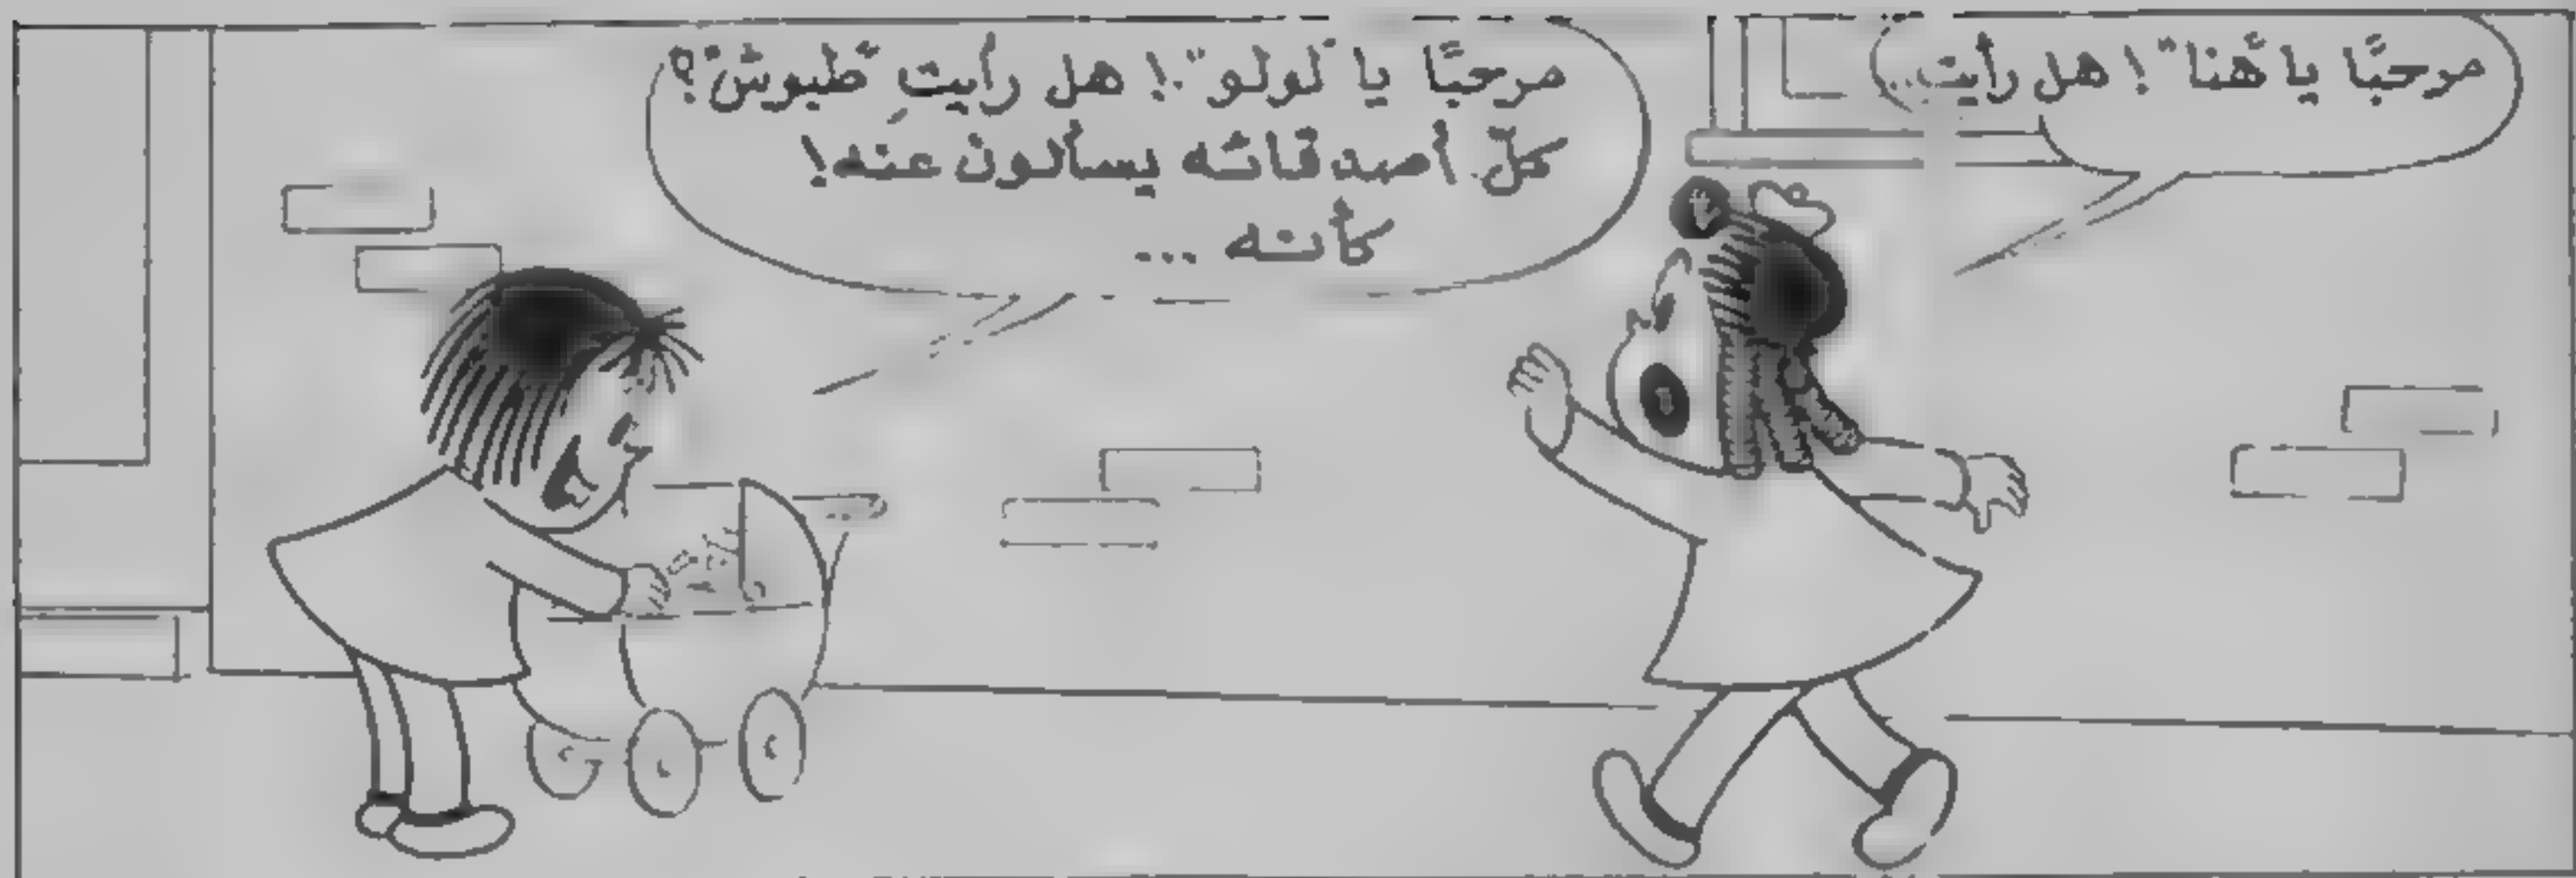 مرحبًا يا "هنا"! هل رأيتِ...
مرحبًا يا "لولو"! هل رأيتِ "طبوش"؟
كلّ أصدقائه يسألون عنه!
كأنه ...